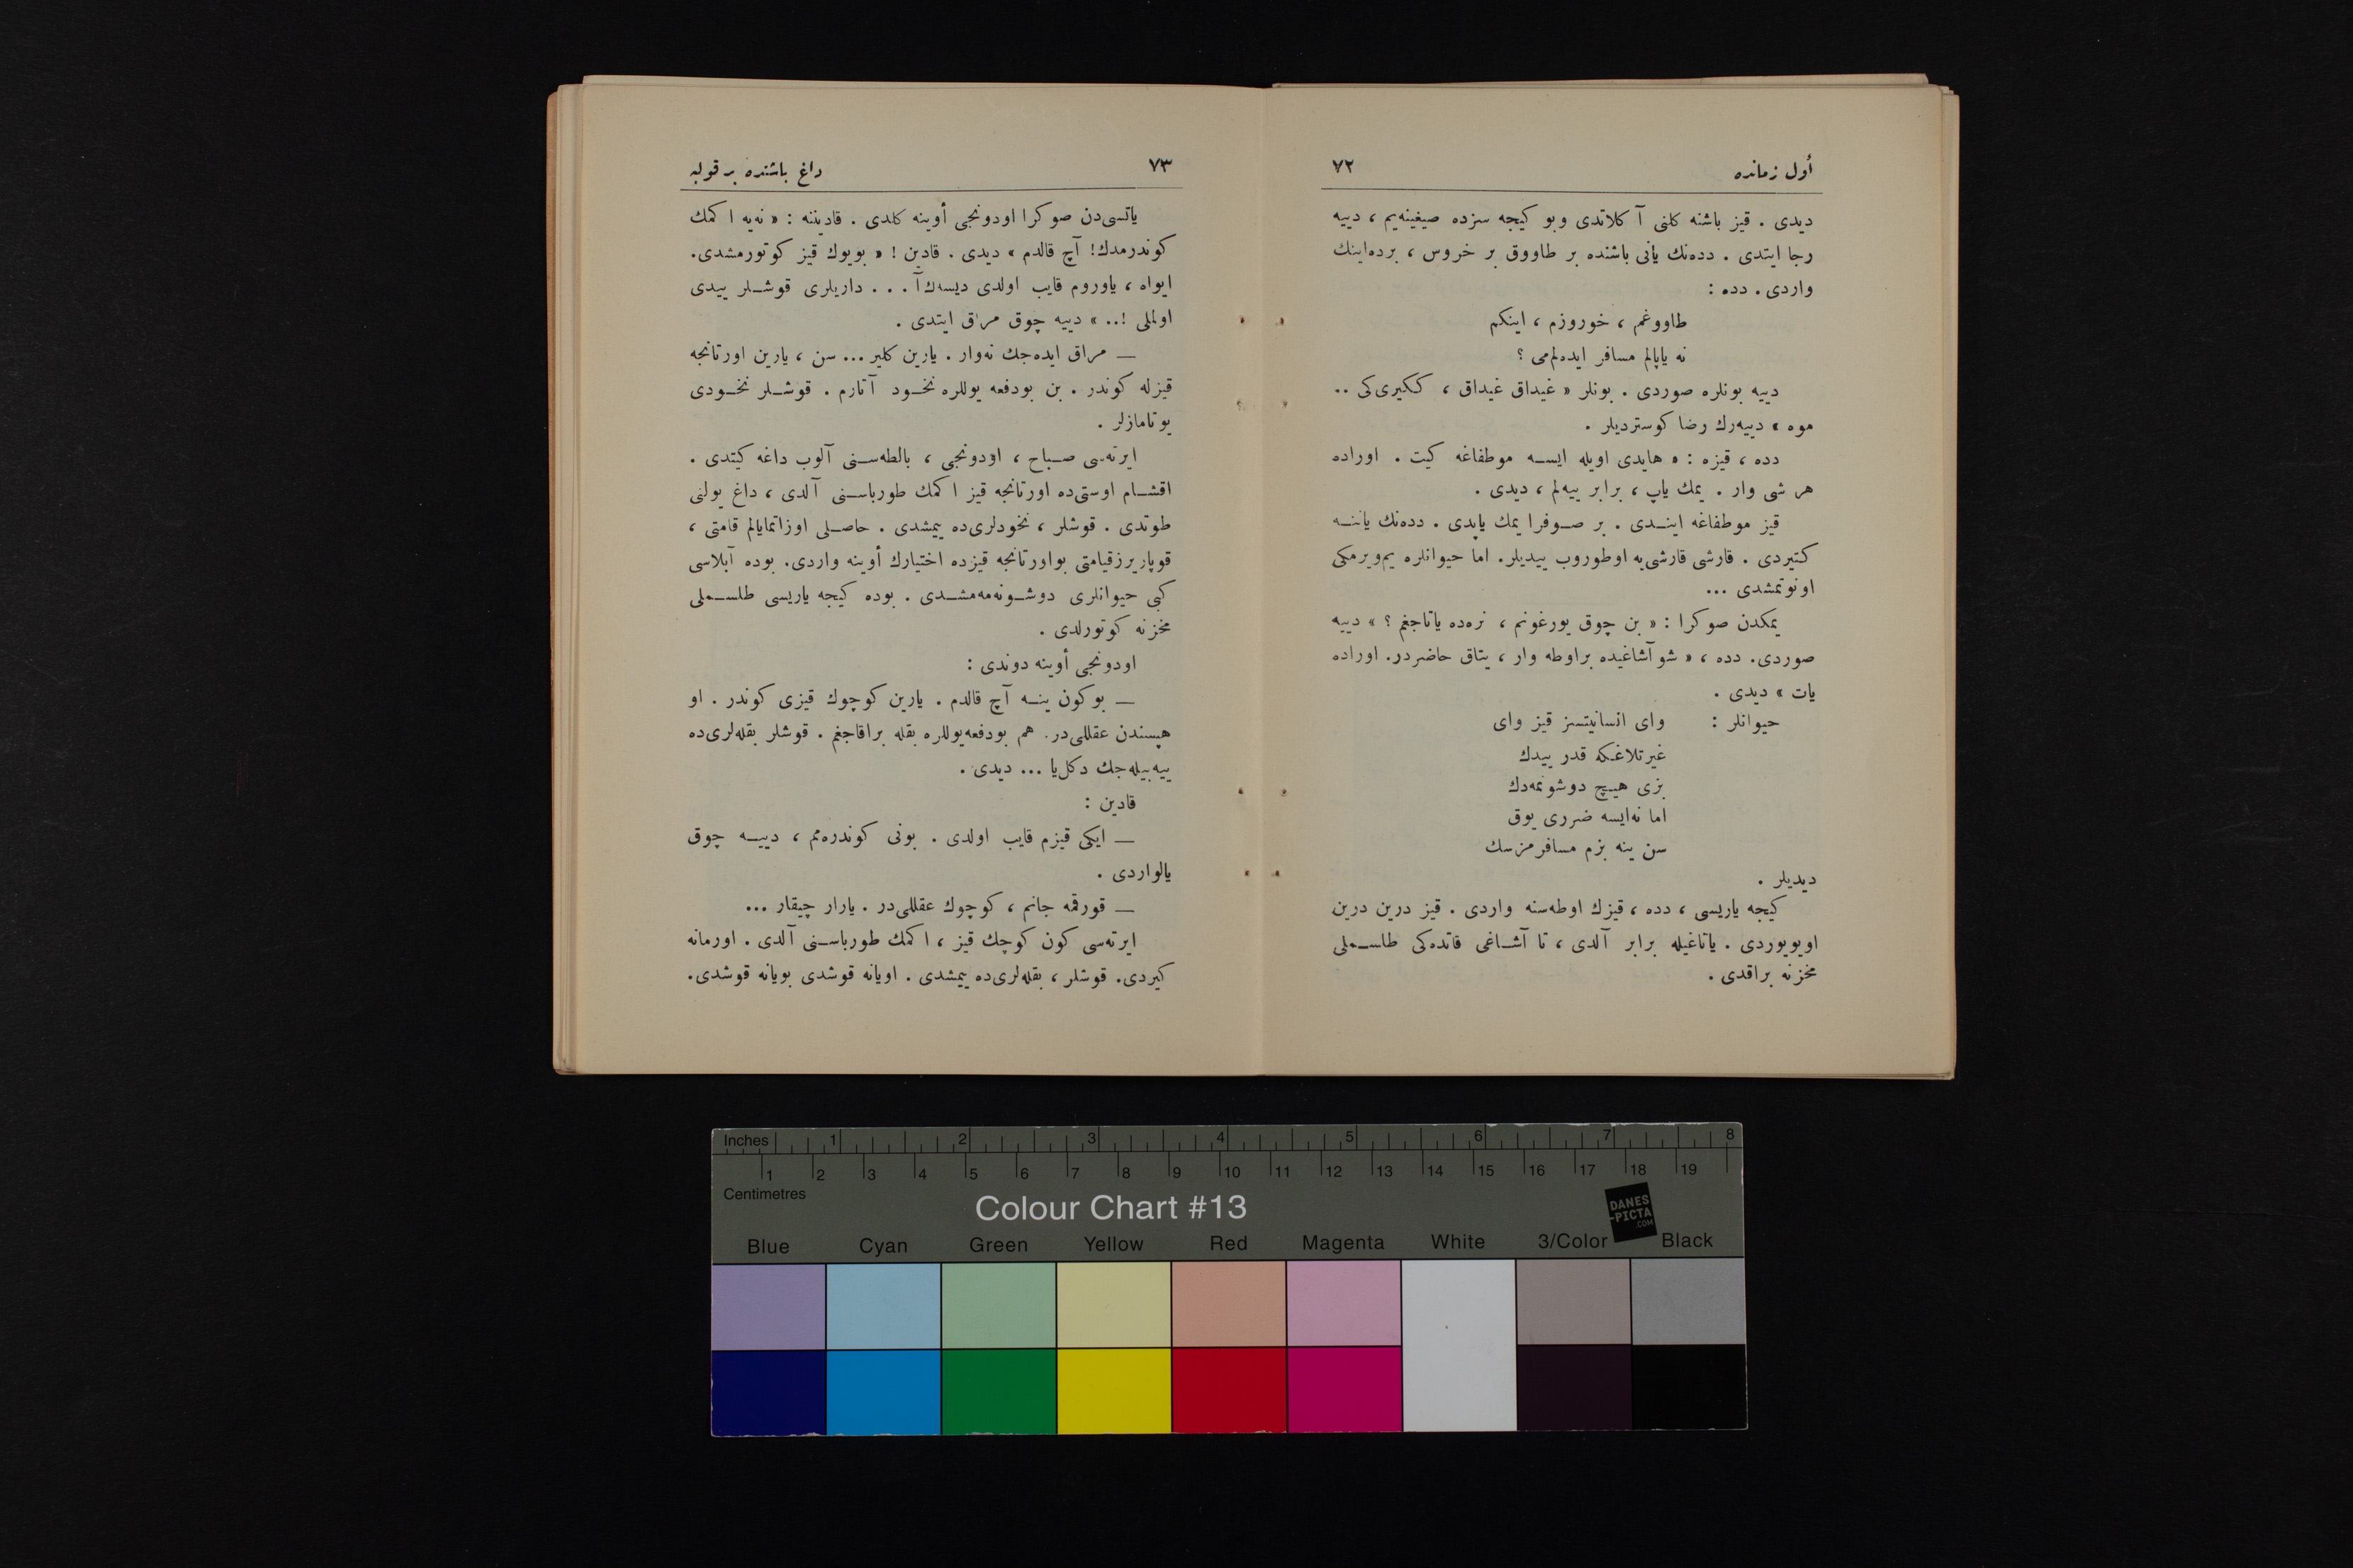 أول زمانده ٧٢
ديدى . قيز باشنه كلنى آ كلاتدى وبو كيجه سزده صيغينه‌يم ، دييه
رجا ايتدى . دده‌نك يانى باشنده بر طاووق بر خروس ، برده‌اينك
واردى . دده :
طاووغم ، خوروزم ، اينكم
نه ياپالم مسافر ايده‌لم‌مى ؟
دييه بونلره صوردى . بونلر « غيداق غيداق ، ككيرى‌كى ..
موه » دييه‌رك رضا كوسترديلر .
دده ، قيزه : « هايدى اويله ايسه موطفاغه كيت . اوراده
هر شى وار . يمك ياپ ، برابر ييه‌لم ، ديدى .
قيز موطفاغه ايندى . بر صوفرا يمك ياپدى . دده‌نك ياننه
كتيردى . قارشى قارشى‌يه اوطوروب ييديلر. اما حيوانلره يم‌ويرمكى
اونوتمشدى ...
يمكدن صوكرا : « بن چوق يورغونم ، نره‌ده ياتاجغم ؟ » دييه
صوردى. دده ، « شو آشاغيده براوطه وار ، يتاق حاضردر. اوراده
يات » ديدى .
حيوانلر : واى انسانيتسز قيز واى
غيرتلاغكه قدر ييدك
بزى هيچ دوشونمه‌دك
اما نه‌ايسه ضررى يوق
سن ينه بزم مسافرمزسك
ديديلر .
كيجه ياريسى ، دده ، قيزك اوطه‌سنه واردى . قيز درين درين
اويويوردى . ياتاغيله برابر آلدى ، تا آشاغى قاتده‌كى طلسملى
مخزنه براقدى .
٧٣ داغ باشنده بر قولبه
ياتسى‌دن صوكرا اودونجى أوينه كلدى . قادينه : « نه‌يه ا كمك
كوندرمدك! آچ قالدم » ديدى . قادين ! « بويوك قيز كوتورمشدى.
ايواه ، ياوروم قايب اولدى ديسه‌ك آ . . . داريلرى قوشلر ييدى
اولملى !.. » دييه چوق مراق ايتدى .
— مراق ايده‌جك نه‌وار . يارين كلير ... سن ، يارين اورتانجه
قيزله كوندر . بن بودفعه يوللره نخود آتارم . قوشلر نخودى
يوتامازلر .
ايرته‌سى صباح ، اودونجى ، بالطه‌سنى آلوب داغه كيتدى .
اقشام اوستى‌ده اورتانجه قيز ا كمك طورباسنى آلدى ، داغ يولنى
طوتدى . قوشلر ، نخودلرى‌ده ييمشدى . حاصلى اوزاتمايالم قامتى ،
قوپاريرزقيامتى بواورتانجه قيزده اختيارك أوينه واردى. بوده آبلاسى
كبى حيوانلرى دوشونه‌مه‌مشدى . بوده كيجه ياريسى طلسملى
مخزنه كوتورلدى .
اودونجى أوينه دوندى :
— بوكون ينه آچ قالدم . يارين كوچوك قيزى كوندر . او
هپسندن عقللى‌در. هم بودفعه‌يوللره بقله براقاجغم . قوشلر بقله‌لرى‌ده
ييه‌بيله‌جك دكل‌يا ... ديدى .
قادين :
— ايكى قيزم قايب اولدى . بونى كوندره‌مم ، دييه چوق
يالواردى .
— قورقمه جانم ، كوچوك عقللى‌در . يارار چيقار ...
ايرته‌سى كون كوچك قيز ، ا كمك طورباسنى آلدى . اورمانه
كيردى. قوشلر ، بقله‌لرى‌ده ييمشدى . اويانه قوشدى بويانه قوشدى.
Inches 1 2 3 4 5 6 7 8
1 2 3 4 5 6 7 8 9 10 11 12 13 14 15 16 17 18 19
Centimetres
Colour Chart #13
DANES
-PICTA
.COM
Blue Cyan Green Yellow Red Magenta White 3/Color Black